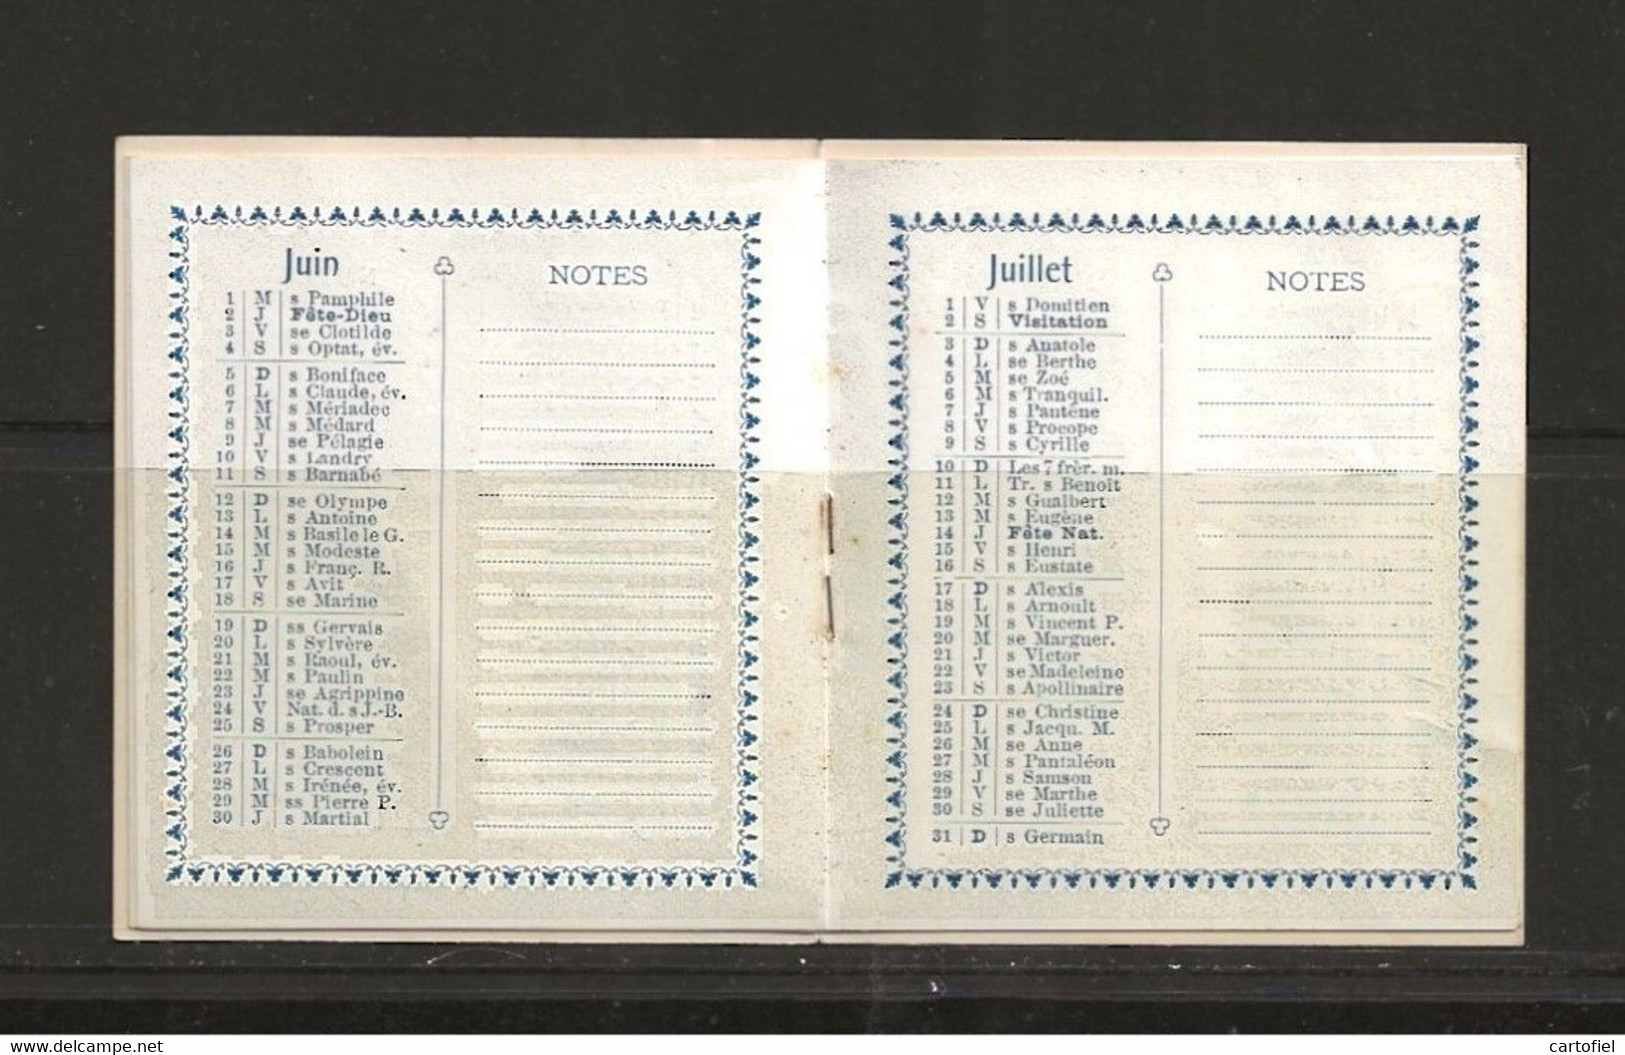 Juin
NOTES
1 M s Pamphile
2 J Fête-Dieu
3 V se Clotilde
4 S s Optat, év.
5 D s Boniface
6 L s Claude, év.
7 M s Mériadec
8 M s Médard
9 J se Pélagie
10 V s Landry
11 S s Barnabé
12 D se Olympe
13 L s Antoine
14 M s Basile le G.
15 M s Modeste
16 J s Franç. R.
17 V s Avit
18 S se Marine
19 D ss Gervais
20 L s Sylvère
21 M s Raoul, év.
22 M s Paulin
23 J se Agrippine
24 V Nat. d. s J.-B.
25 S s Prosper
26 D s Babolein
27 L s Crescent
28 M s Irénée, év.
29 M ss Pierre P.
30 J s Martial
Juillet
NOTES
1 V s Domitien
2 S Visitation
3 D s Anatole
4 L se Berthe
5 M se Zoé
6 M s Tranquil.
7 J s Pantène
8 V s Procope
9 S s Cyrille
10 D Les 7 frèr. m.
11 L Tr. s Benoit
12 M s Gualbert
13 M s Eugène
14 J Fête Nat.
15 V s Henri
16 S s Eustate
17 D s Alexis
18 L s Arnoult
19 M s Vincent P.
20 M se Marguer.
21 J s Victor
22 V se Madeleine
23 S s Apollinaire
24 D se Christine
25 L s Jacqu. M.
26 M se Anne
27 M s Pantaléon
28 J s Samson
29 V se Marthe
30 S se Juliette
31 D s Germain
www.delcampe.net
cartofiel